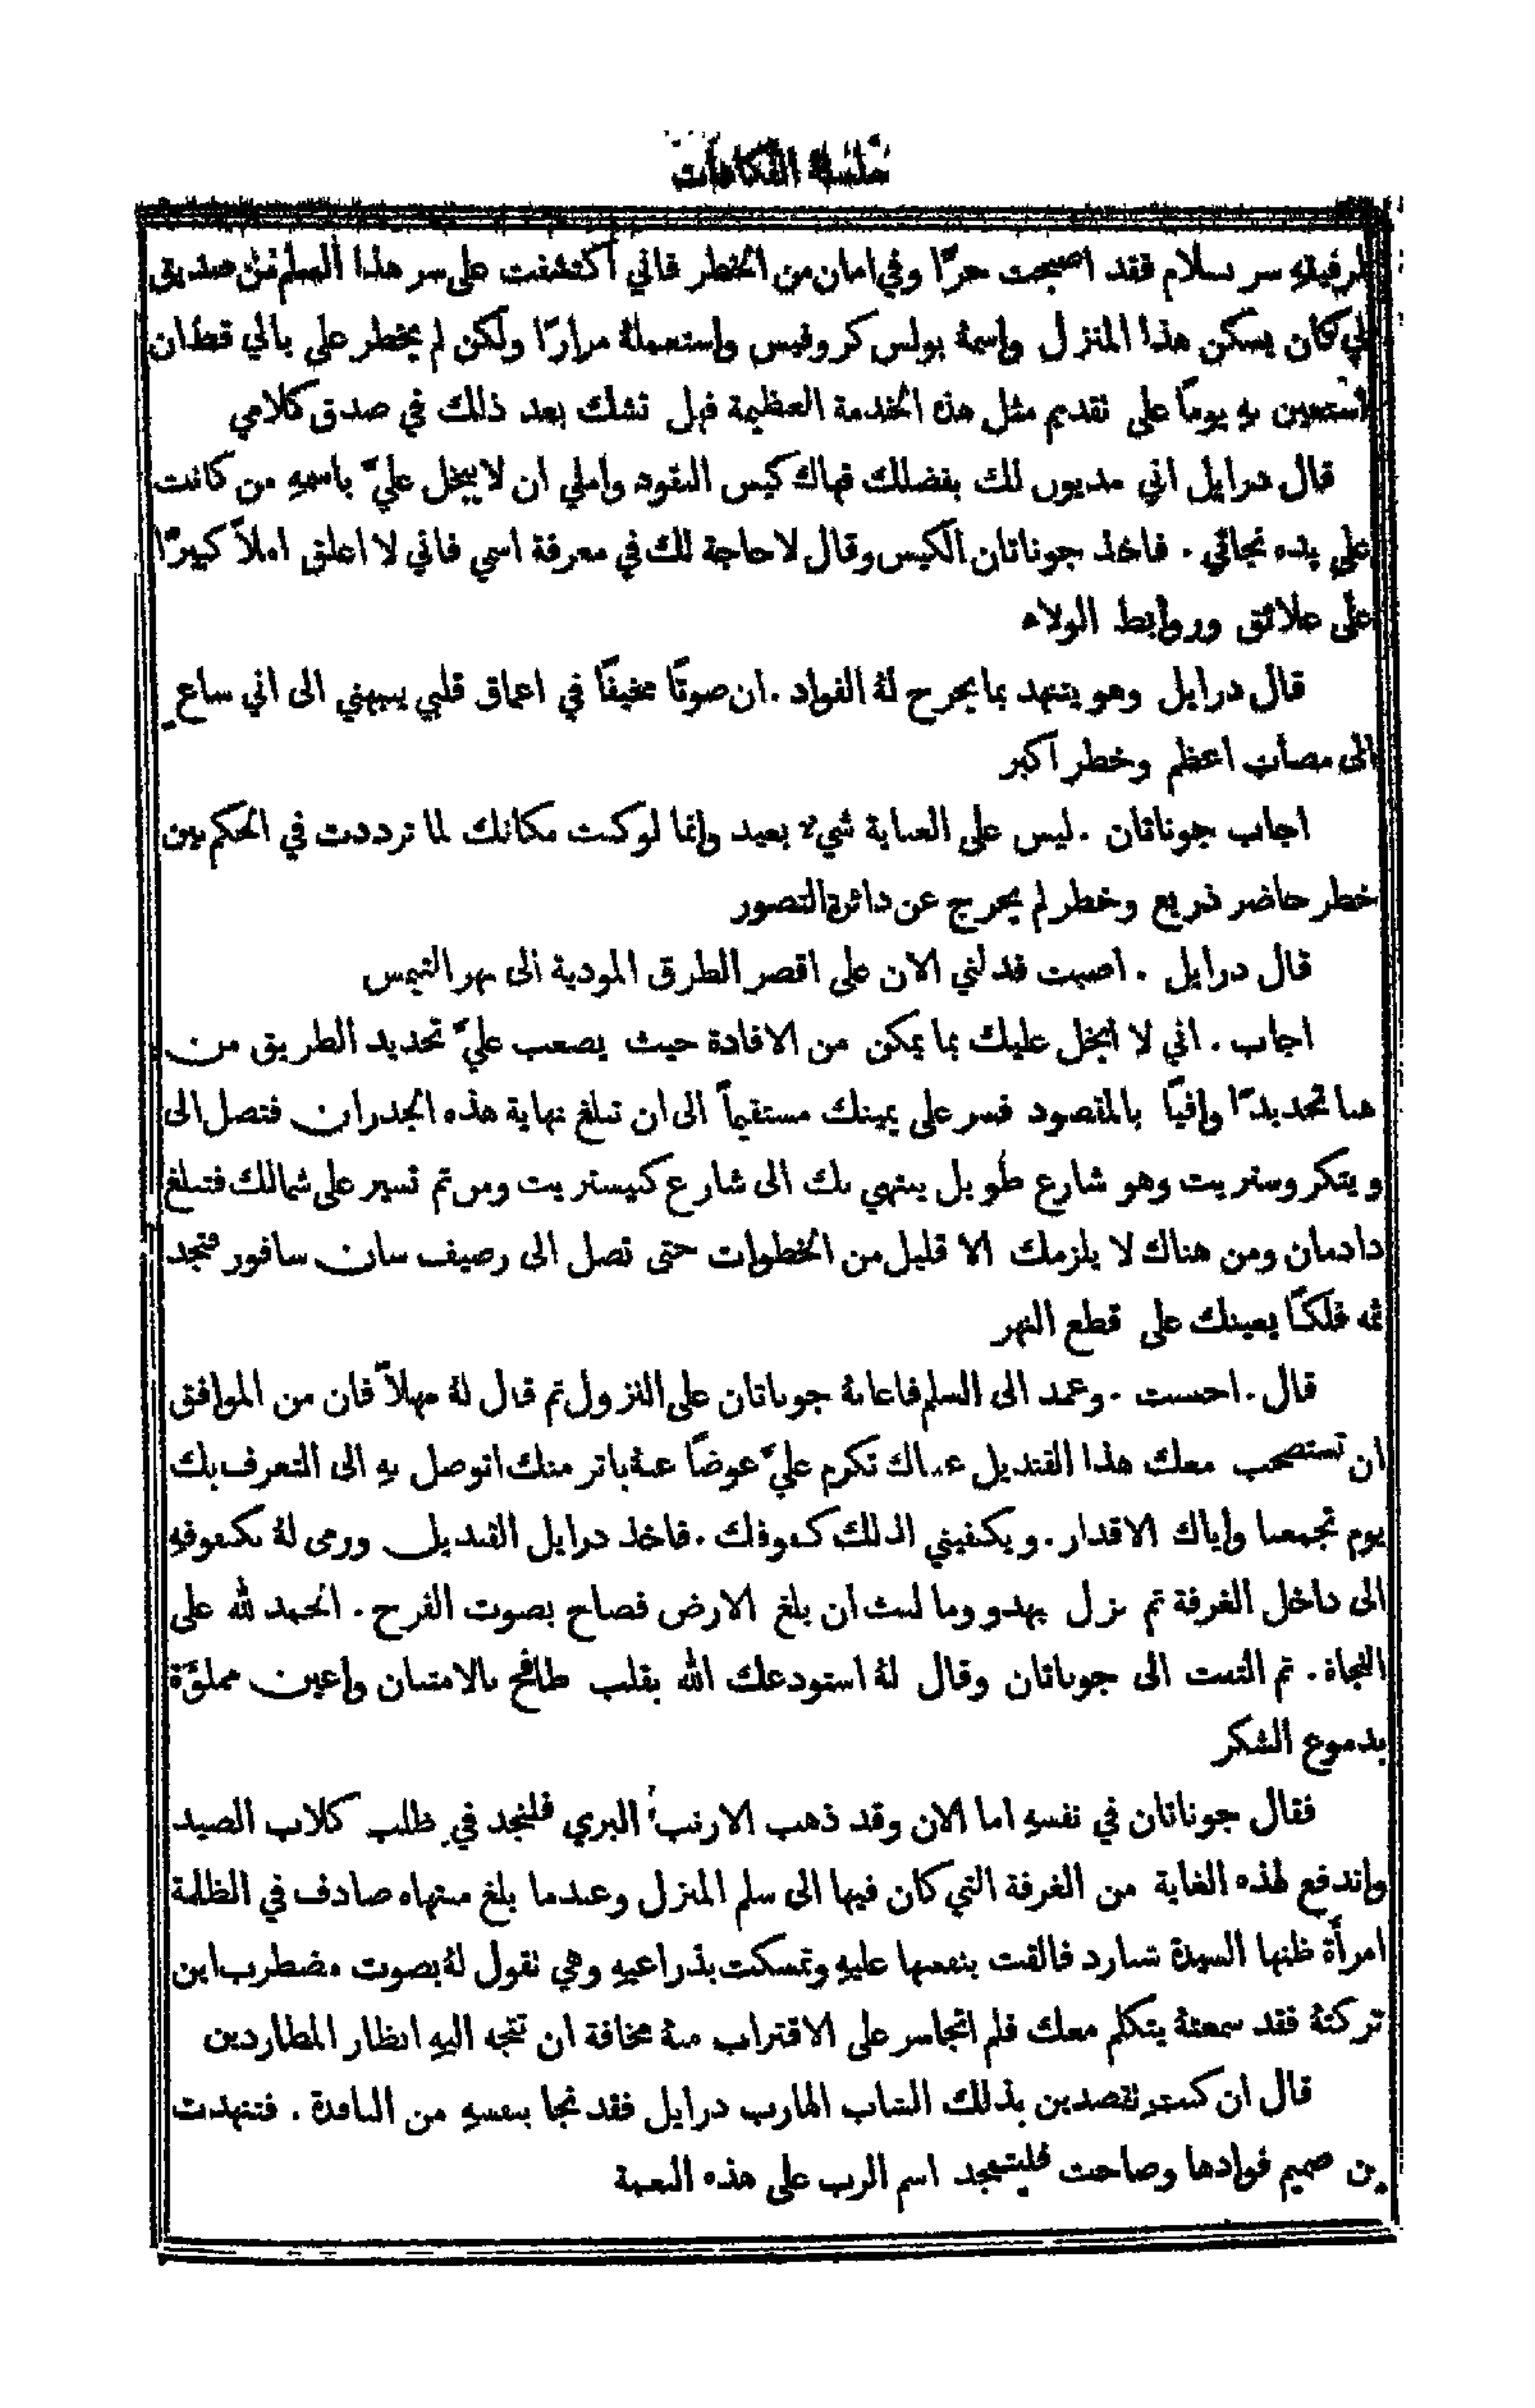 سلسلة الفكاهات
لرفيقه سر بسلام فقد اصبحت حرًّا وفي امان من الخطر فاني أكتشفت على سر هذا السلم من صديق
لي كان يسكن هذا المنزل واسمهُ بولس كروفيس واستعملهُ مرارًا ولكن لم يخطر على بالي قط ان
استعين بهِ يوماً على تقديم مثل هذه الخدمة العظيمة فهل تشك بعد ذلك في صدق كلامي
قال درايل اني مديون لك بفضلك فهاك كيس النقود واملي ان لا يبخل عليّ باسمهِ من كانت
على يده نجاتي . فاخذ جوناتان الكيس وقال لا حاجة لك في معرفة اسمي فاني لا اعلق املاً كبيرًا
على علائق وروابط الولاء
قال درايل وهو يتنهد بما يجرح لهُ الفواد . ان صوتًا مخيفًا في اعماق قلبي ينبهني الى اني ساعٍ
الى مصأب اعظم وخطر اكبر
اجاب جوناتان . ليس على العناية شيء بعيد وانما لو كنت مكانك لما ترددت في الحكم بين
خطر حاضر ذريع وخطر لم يخرج عن دائرة التصور
قال درايل . اصبت فدلني الان على اقصر الطرق المودية الى نهر التيمس
اجاب . اني لا ابخل عليك بما يمكن من الافادة حيث يصعب عليّ تحديد الطريق من
هنا تحديدًا وافيًا بالمقصود فسر على يمينك مستقيماً الى ان تبلغ نهاية هذه الجدران فتصل الى
ويتكروستريت وهو شارع طويل ينتهي بك الى شارع كنيستريت ومن ثم تسير على شمالك فتبلغ
دادمان ومن هناك لا يلزمك الا قليل من الخطوات حتى تصل الى رصيف سان سافور فتجد
ثمه فلكًا يعينك على قطع النهر
قال . احسنت . وعمد الى السلم فاعانهُ جوناتان على النزول ثم قال لهُ مهلاً فان من الموافق
ان تستصحب معك هذا القنديل عساك تكرم عليّ عوضًا عنهُ باثر منك اتوصل بهِ الى التعرف بك
يوم تجمعنا واياك الاقدار . ويكفيني الذلك كفوفك . فاخذ درايل القنديل ورمى لهُ بكفوفهِ
الى داخل الغرفة ثم نزل بهدو وما لبث ان بلغ الارض فصاح بصوت الفرح . الحمد لله على
النجاة . ثم التفت الى جوناتان وقال لهُ استودعك الله بقلب طافح بالامتنان واعين مملؤَة
بدموع الشكر
فقال جوناتان في نفسهِ اما الان وقد ذهب الارنب البري فلنجد في طلب كلاب الصيد
واندفع لهذه الغاية من الغرفة التي كان فيها الى سلم المنزل وعندما بلغ منتهاه صادف في الظلمة
امرأَة ظنها السيدة شارد فالقت بنفسها عليهِ وتمسكت بذراعيهِ وهي تقول لهُ بصوت مضطرب اين
تركتهُ فقد سمعتهُ يتكلم معك فلم اتجاسر على الاقتراب منهُ مخافة ان تتجه اليهِ انظار المطاردين
قال ان كنتِ تقصدين بذلك الشاب الهارب درايل فقد نجا بنفسهِ من النافذة . فتنهدت
من صميم فوادها وصاحت فليتمجد اسم الرب على هذه النعمة